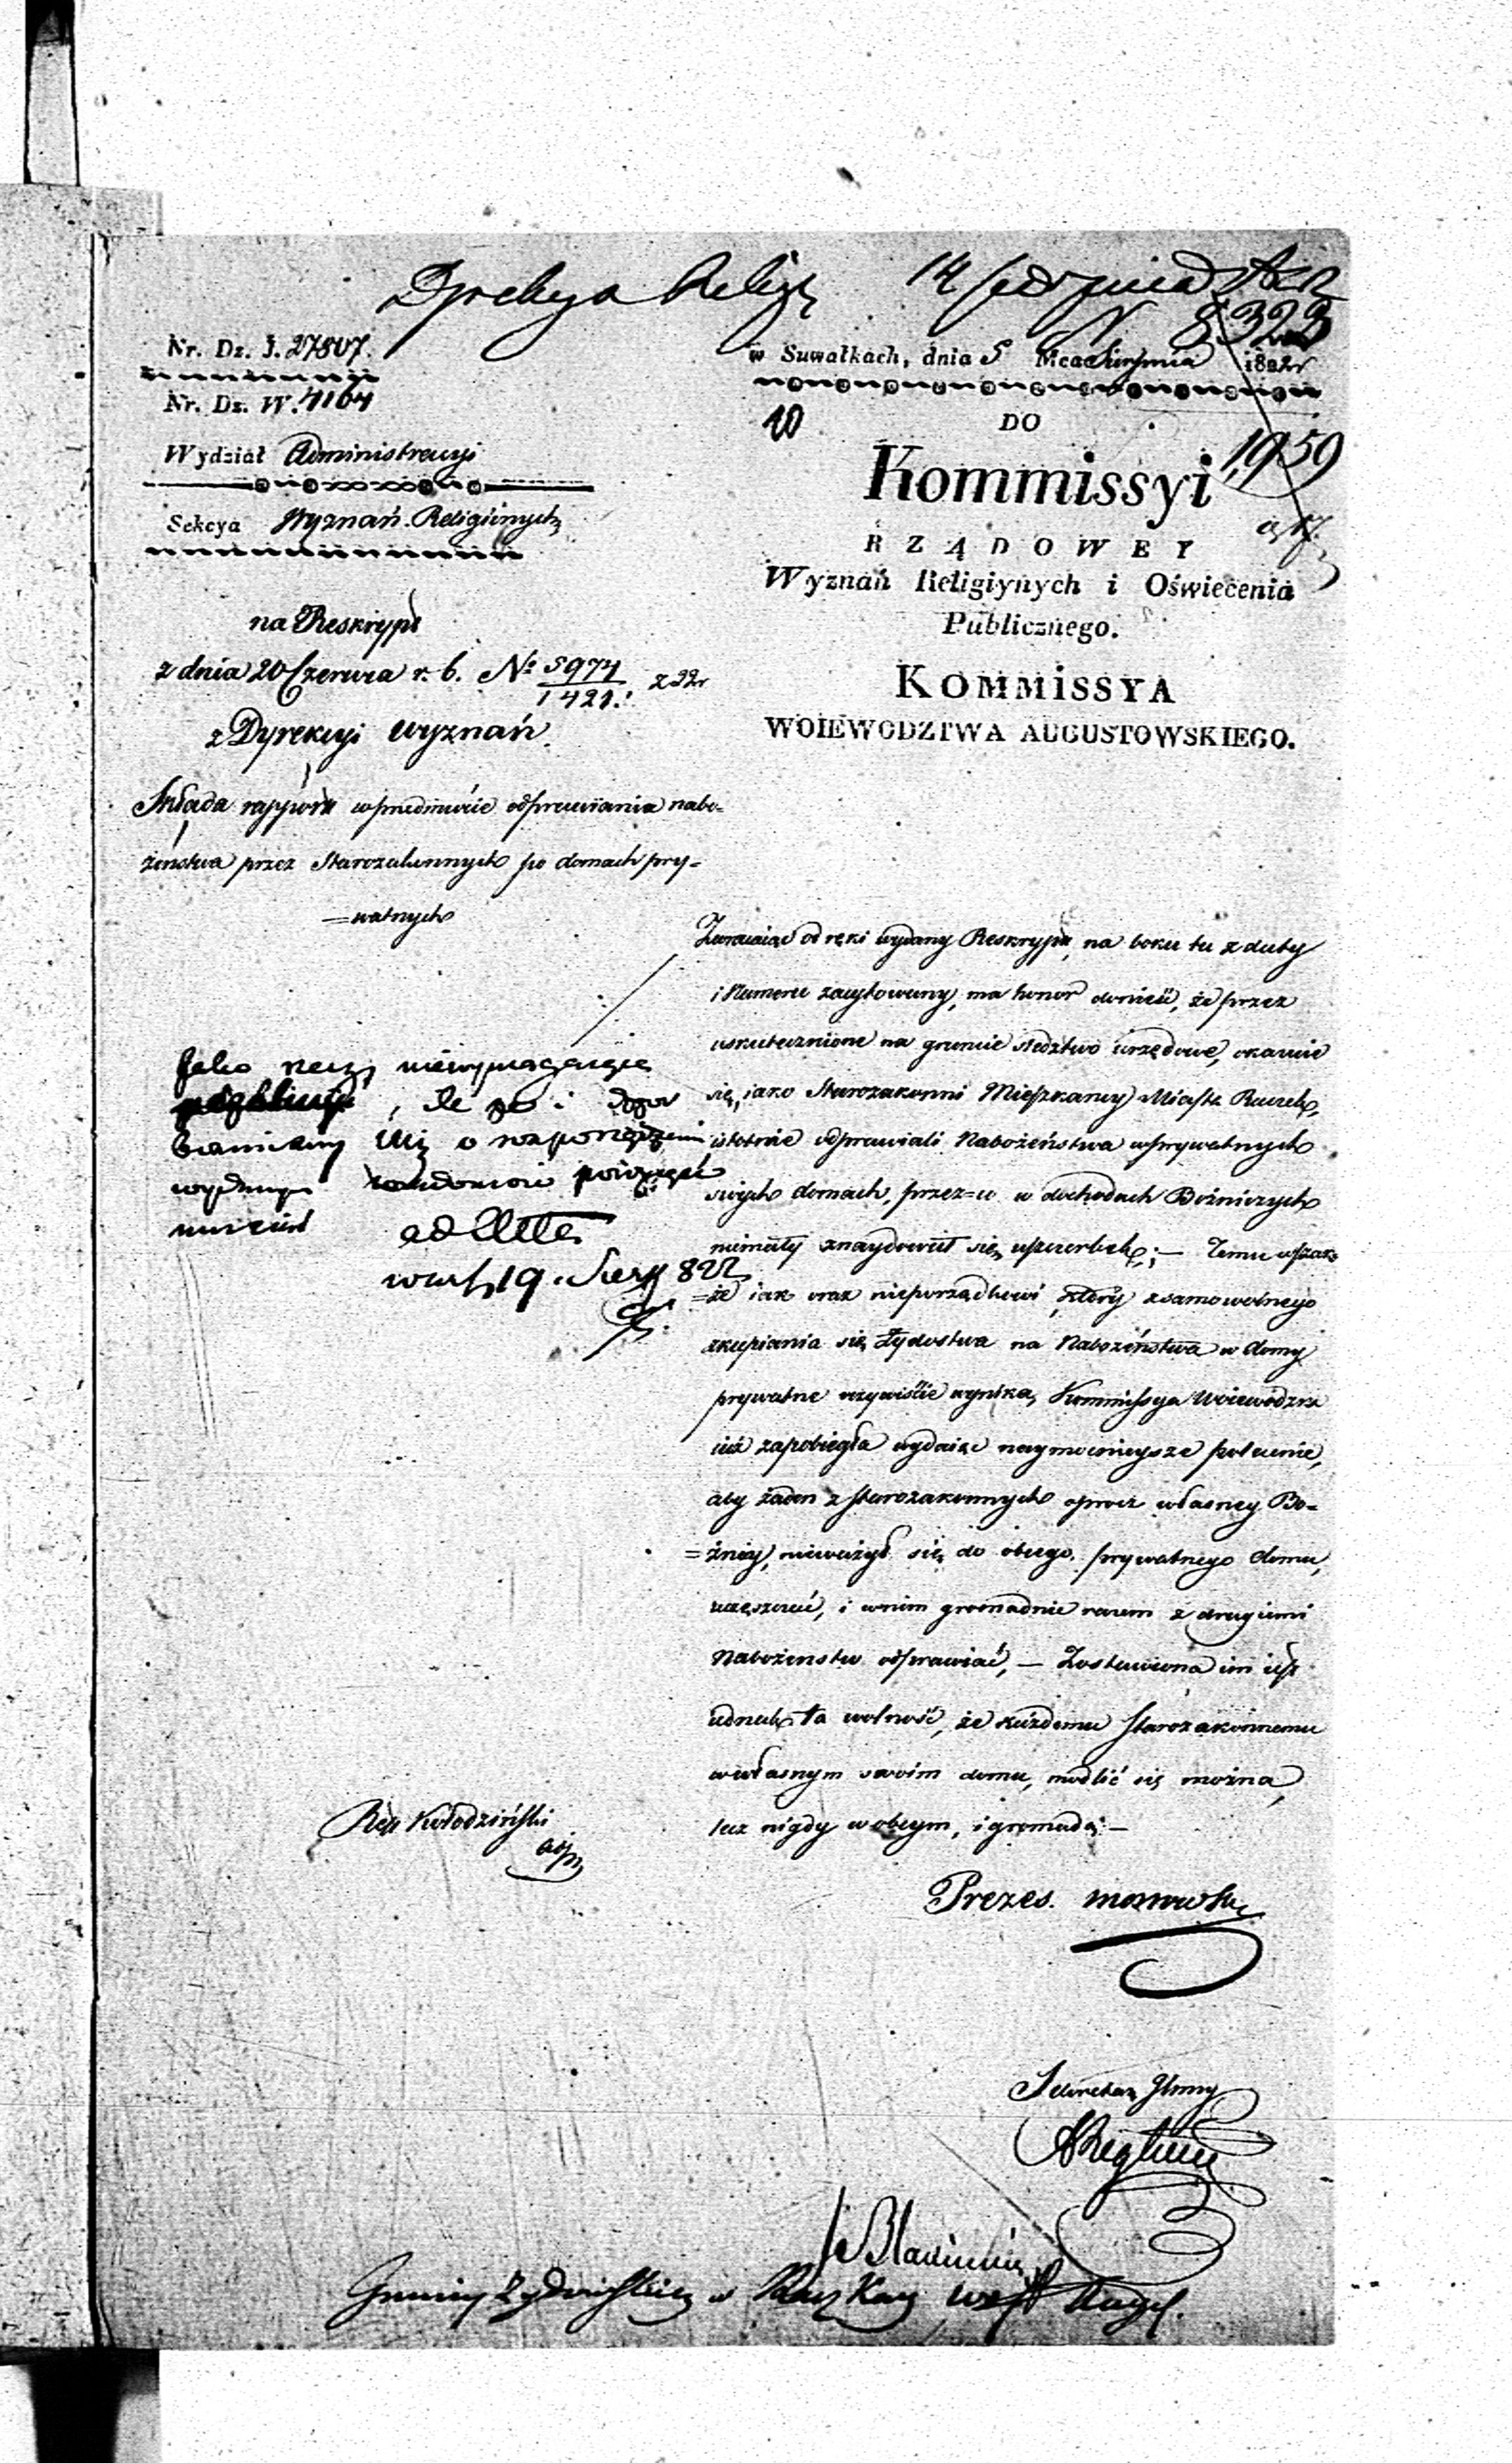 Dyrekcya Religiy 14 sierpnia
N 8322
Nr. Dz. J. 27807.
Nr. Dz. W. 4164
Wydział Administracyi
Sekcya Wyznań Religiinych
w Suwałkach, dnia 5 Mca Sierpnia 1822r
10
DO
Kommissyi
1,959
RZĄDOWEY
Wyznań Religiynych i Oświecenia
Publicznego.
KOMMISSYA
WOIEWODZTWA AUGUSTOWSKIEGO.
na Reskrypt
z dnia 20 Czerwca r. b. No 5974/1421. z 22r
z Dyrekcyi Wyznań
Składa rapport w przedmiocie odprawiania nabo=
żeństwa przez Starozakonnych po domach pry=
=watnych
Zwracaiąc od ręki wydany Reskrypt, na boku tu z daty
i Numeru zacytowany, ma honor donieść, że przez
uskutecznione na gruncie śledztwo urzędowe, okazuie
się, iako Starozakonni Mieszkańcy Miasta Raczek,
istotnie odprawiali Nabożeństwa w prywatnych
swych domach, przez=co w dochodach Bóżniczych
niemały znaydował się uszczerbek; — Temu wszak=
=że iak oraz nieporządkowi, który z samowolnego
skupiania się Żydostwa na Nabożeństwa w domy
prywatne oczywiście wynika, Kommissya Woiewódzka
iuż zapobiegła wydaiąc naymocnieysze polecenie,
aby żaden z starozakonnych oprócz własney Bo=
=żnicy, nieważył się do obcego prywatnego domu,
uczęszczać, i w nim gromadnie razem z drugiemi
Nabożeństw odprawiać, — Zostawiona im iest
iednak ta wolność, że każdemu Starozakonnemu
w własnym swoim domu, modlić się można,
lecz nigdy w obcym, i gromadą. —
Jako rzecz niewymagaiąca
, ile że i
o rozporządzeniu
ad Acta
warsz 19 Sierp 822
Kołodziński
Adj
Prezes.
Sekretarz Jlny
Gminy Żydowskiey w Raczkach Woj Aug.